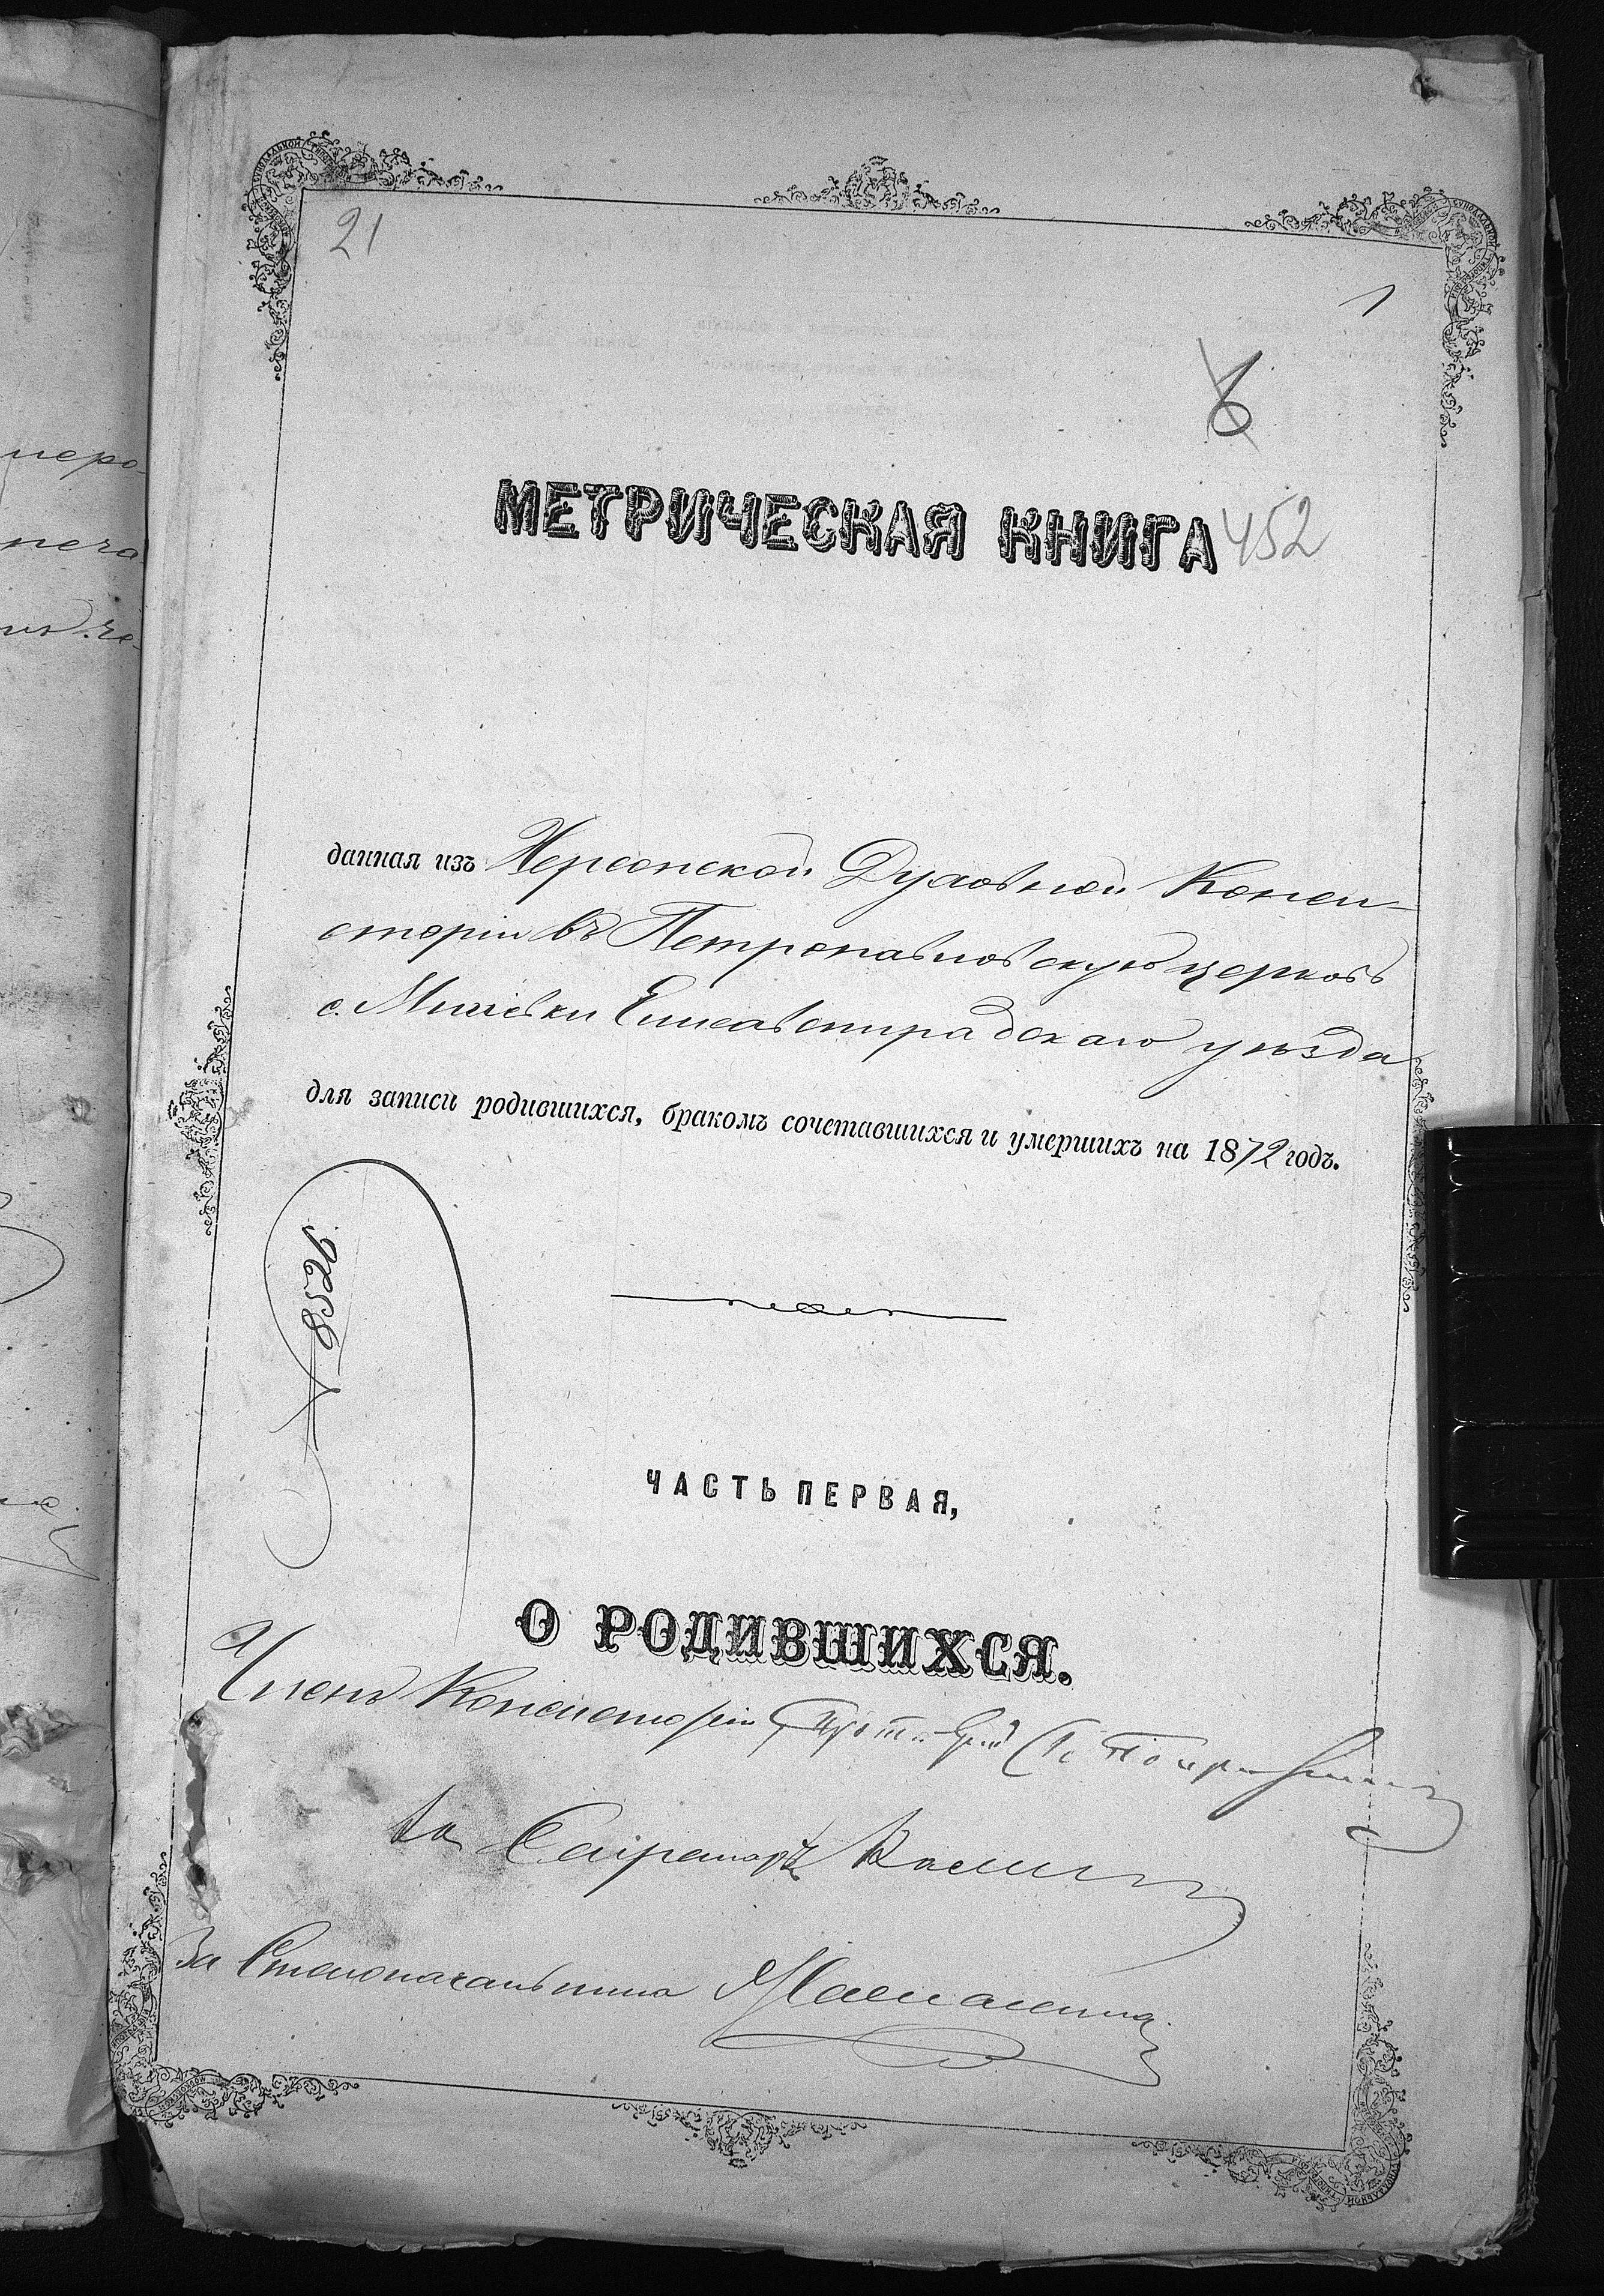 21
1
6
МЕТРИЧЕСКАЯ КНИГА 452
данная изъ Херсонской Духовной Конси-
сторіи въ Петропавловскую церковь
с. Елисаветградскаго уѣзда
для записи родившихся, бракомъ сочетавшихся и умершихъ на 1872 годъ.
9258
ЧАСТЬ ПЕРВАЯ,
О РОДИВШИХСЯ.
Членъ Консисторіи
За Секретаря
За Столоначальника